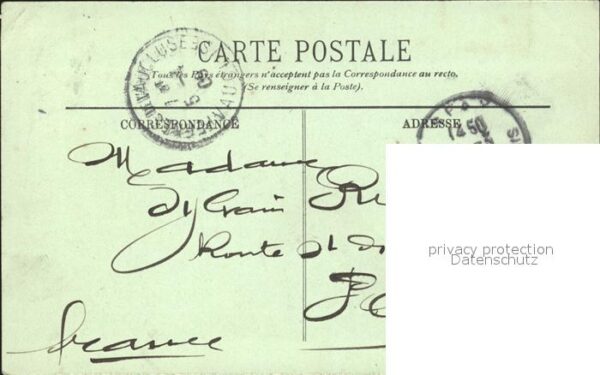 CARTE POSTALE
Tous les Pays étrangers n'acceptent pas la Correspondance au recto.
(Se renseigner à la Poste).
CORRESPONDANCE
ADRESSE
Madame
Sylvain
Route St
France
privacy protection
Datenschutz